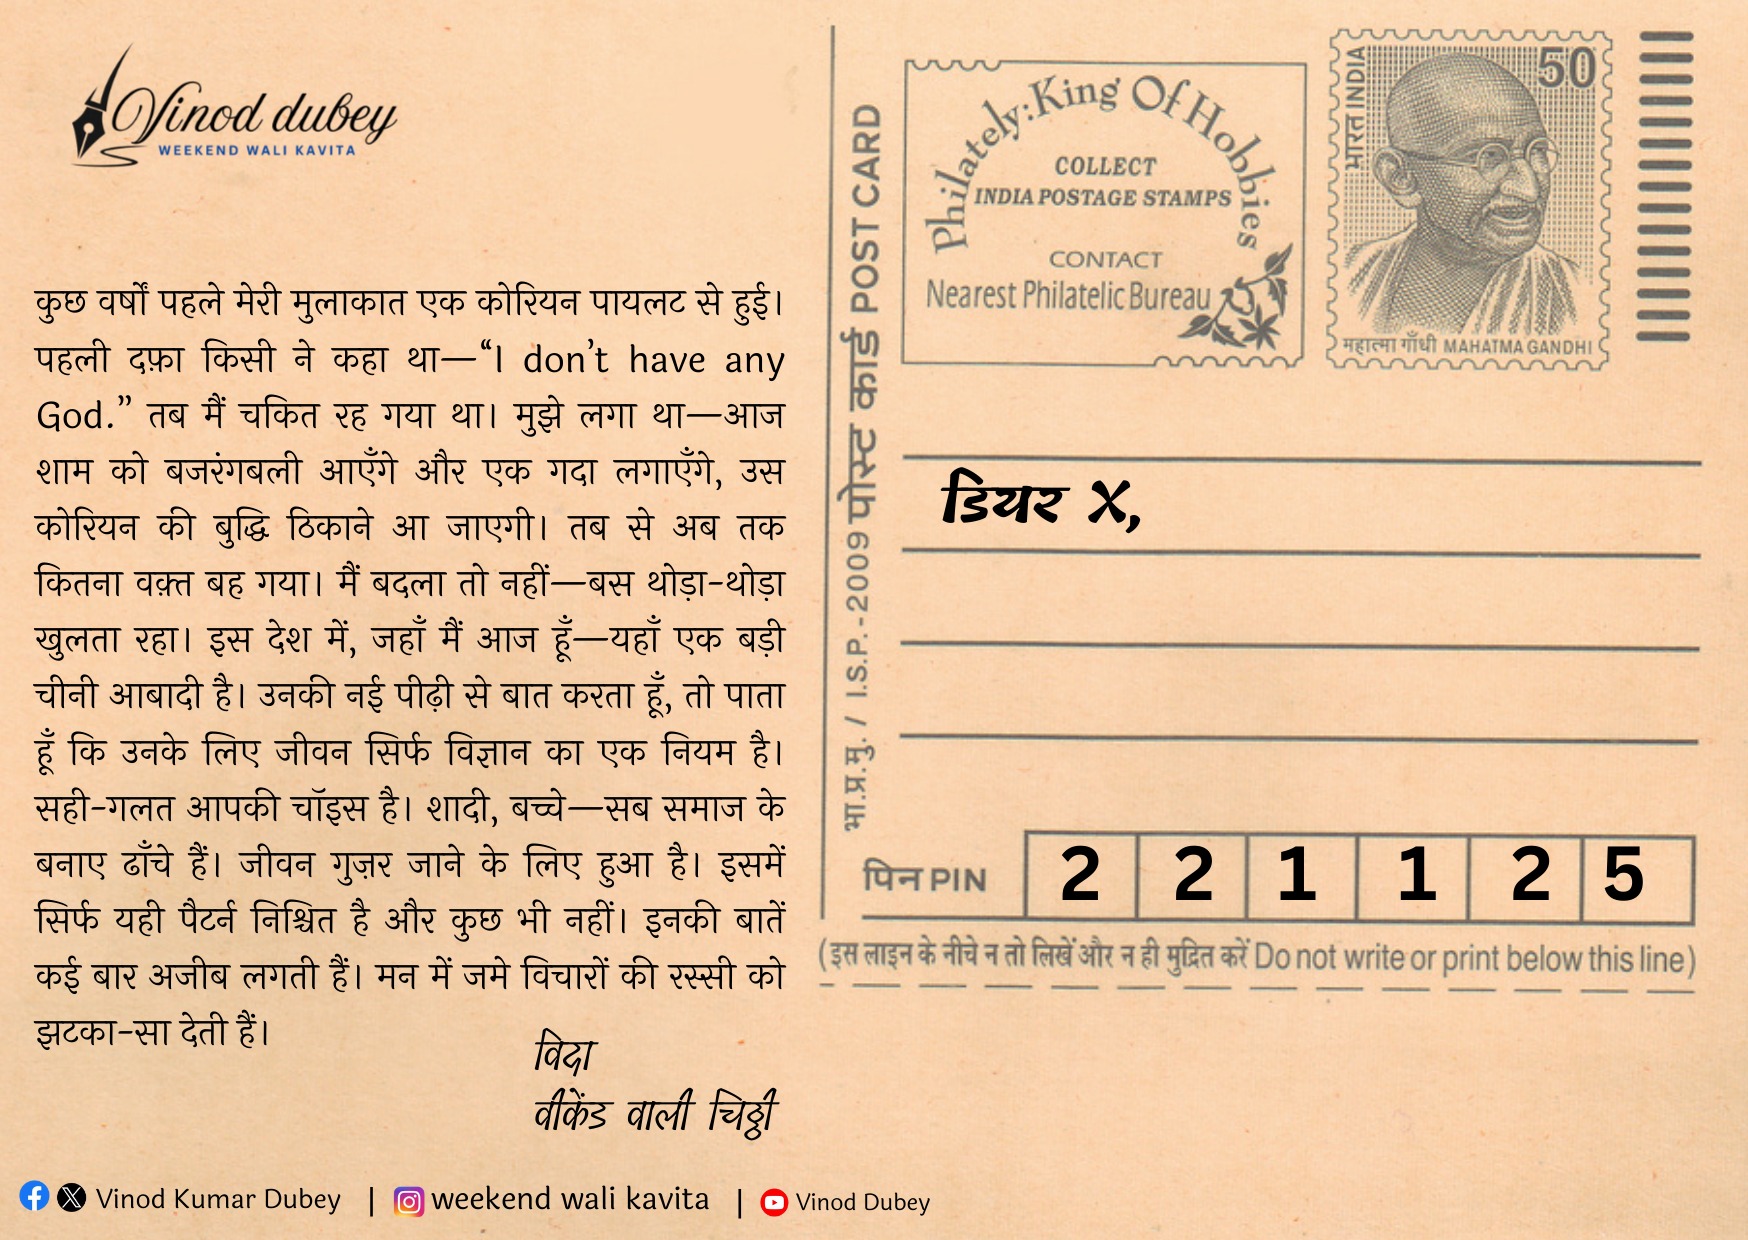 Vinod dubey
WEEKEND WALI KAVITA
कुछ वर्षों पहले मेरी मुलाकात एक कोरियन पायलट से हुई।
पहली दफ़ा किसी ने कहा था—“I don’t have any
God.” तब मैं चकित रह गया था। मुझे लगा था—आज
शाम को बजरंगबली आएँगे और एक गदा लगाएँगे, उस
कोरियन की बुद्धि ठिकाने आ जाएगी। तब से अब तक
कितना वक़्त बह गया। मैं बदला तो नहीं—बस थोड़ा-थोड़ा
खुलता रहा। इस देश में, जहाँ मैं आज हूँ—यहाँ एक बड़ी
चीनी आबादी है। उनकी नई पीढ़ी से बात करता हूँ, तो पाता
हूँ कि उनके लिए जीवन सिर्फ विज्ञान का एक नियम है।
सही-गलत आपकी चॉइस है। शादी, बच्चे—सब समाज के
बनाए ढाँचे हैं। जीवन गुज़र जाने के लिए हुआ है। इसमें
सिर्फ यही पैटर्न निश्चित है और कुछ भी नहीं। इनकी बातें
कई बार अजीब लगती हैं। मन में जमे विचारों की रस्सी को
झटका-सा देती हैं।
विदा
वीकेंड वाली चिठ्ठी
भा.प्र.मु. / I.S.P.-2009 पोस्ट कार्ड POST CARD
Philately: King Of Hobbies
COLLECT
INDIA POSTAGE STAMPS
CONTACT
Nearest Philatelic Bureau
भारत INDIA
50
महात्मा गाँधी MAHATMA GANDHI
डियर X,
पिन PIN 2 2 1 1 2 5
(इस लाइन के नीचे न तो लिखें और न ही मुद्रित करें Do not write or print below this line)
Vinod Kumar Dubey | weekend wali kavita | Vinod Dubey